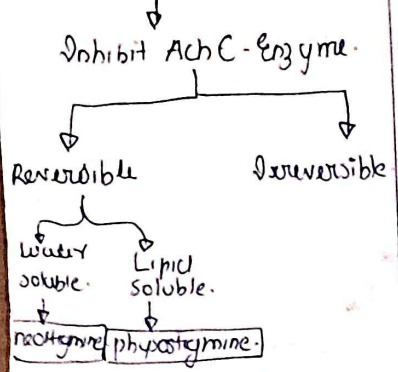 Inhibit AchC-Enzyme.
Reversible
Irreversible
Water
soluble.
Lipid
soluble.
neostigmine
physostigmine.